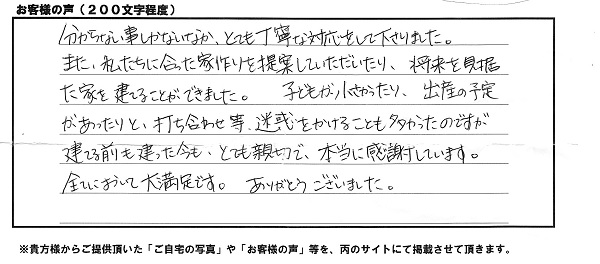 お客様の声（２００文字程度）
分からない事しかないなか、とても丁寧な対応をして下さりました。
また、私たちに合った家作りを提案していただいたり、将来を見据
た家を建てることができました。 子どもが小さかったり、出産の予定
があったりと、打ち合わせ等、迷惑をかけることも多かったのですが
建てる前も建った今も、とても親切で、本当に感謝しています。
全てにおいて大満足です。 ありがとうございました。
※貴方様からご提供頂いた「ご自宅の写真」や「お客様の声」等を、丙のサイトにて掲載させて頂きます。